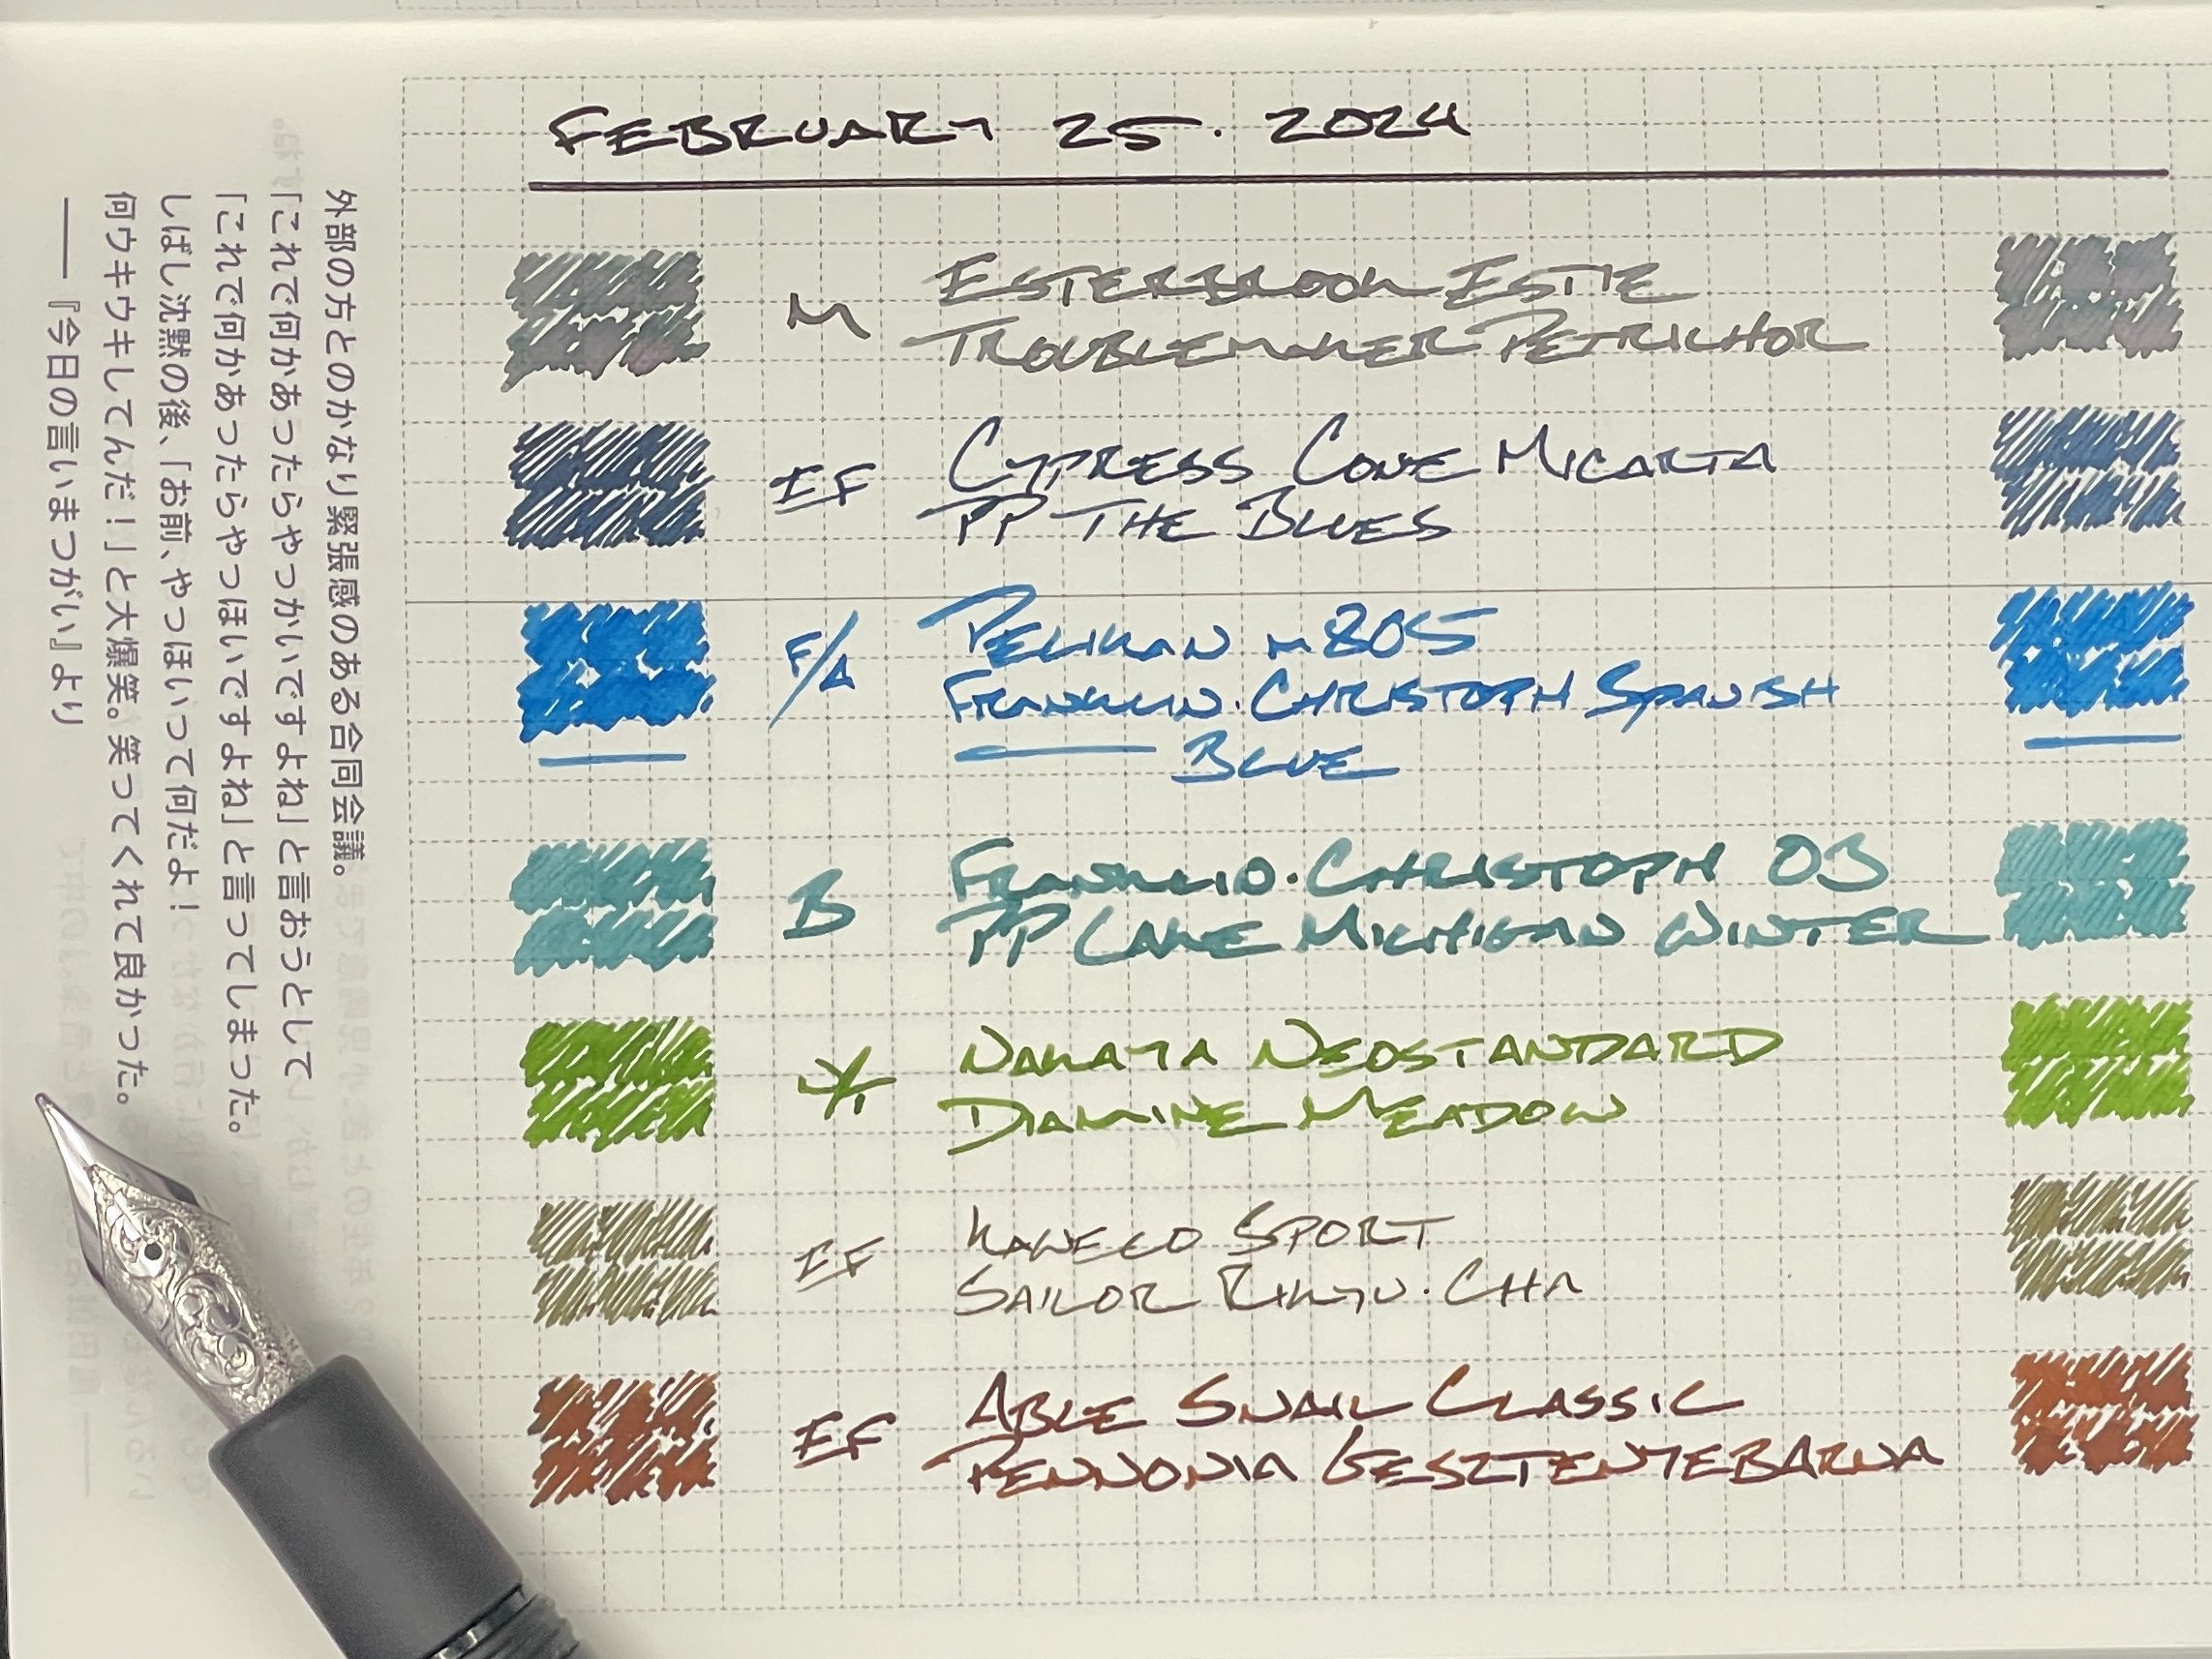 FEBRUARY 25. 2024
M ESTERBROOK ESTIE
TROUBLEMAKER PETRICHOR
EF CYPRESS CONE MICARTA
PP THE BLUES
F/A PELIKAN M805
FRANKLIN.CHRISTOPH SPANISH
BLUE
B FRANKLIN.CHRISTOPH 03
PP LAKE MICHIGAN WINTER
NAKAYA NEOSTANDARD
DIAMINE MEADOW
EF KAWECO SPORT
SAILOR RIKYU.CHA
EF ABLE SNAIL CLASSIC
PENNONIA GESZTENYEBARNA
外部の方とのかなり緊張感のある合同会議。
「これで何かあったらやっかいですよね」と言おうとして
「これで何かあったらやっほいですよね」と言ってしまった。
しばし沈黙の後、「お前、やっほいって何だよ！
何ウキウキしてんだ！」と大爆笑。笑ってくれて良かった。
——『今日の言いまつがい』より